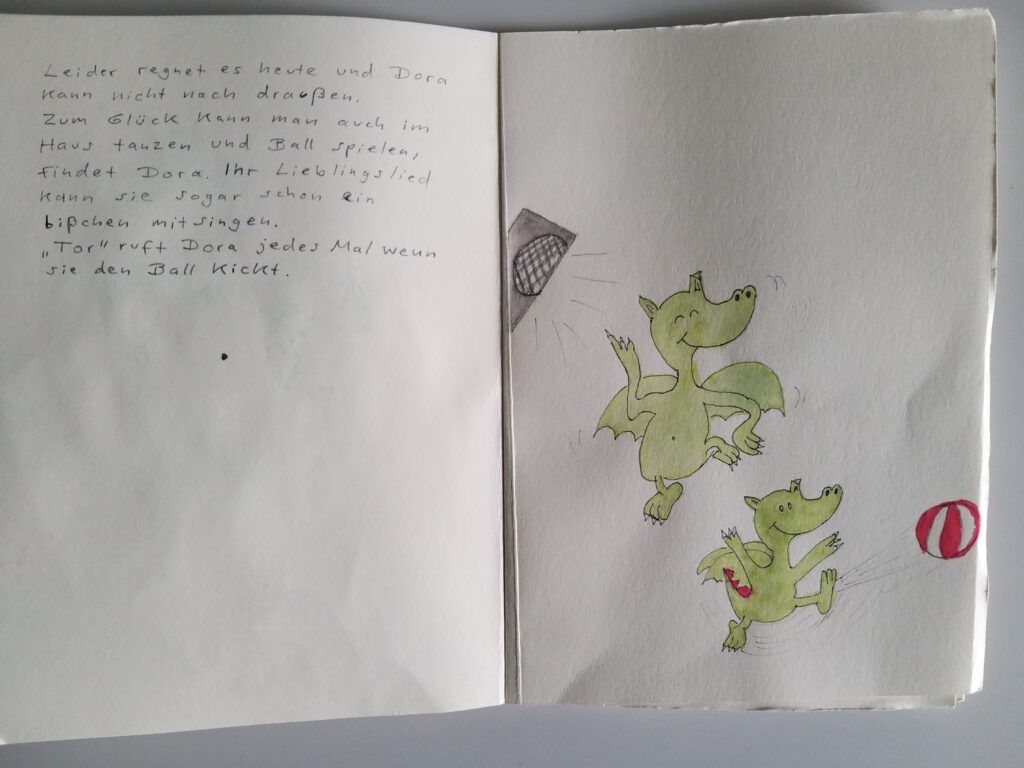 Leider regnet es heute und Dora
kann nicht nach draußen.
Zum Glück kann man auch im
Haus tanzen und Ball spielen,
findet Dora. Ihr Lieblingslied
kann sie sogar schon ein
bißchen mitsingen.
„Tor“ ruft Dora jedes Mal wenn
sie den Ball kickt.